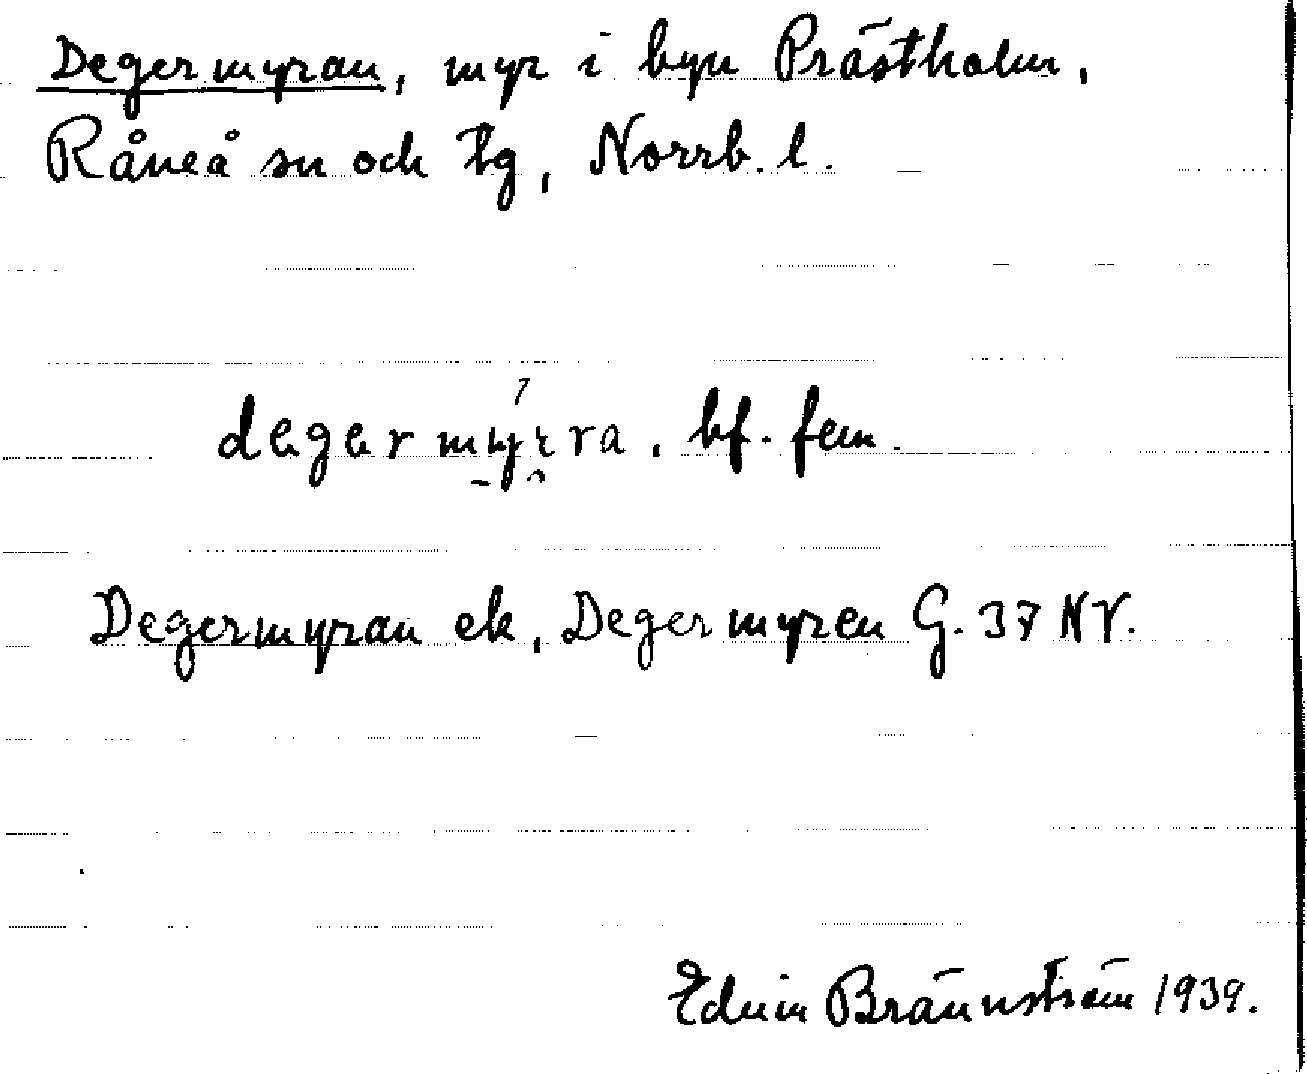 Degermyran, myr i byn Prästholm,
Råneå sn och tg, Norrb. l.
degermyrra, bf. fem.
Degermyran ek, Degermyren G. 37 NV.
Edvin Brännström 1939.